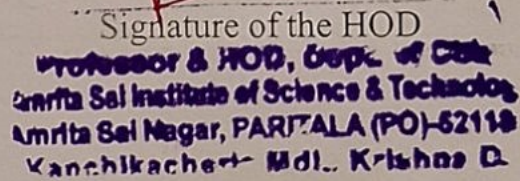 Signature of the HOD
Professor & HOD, Dept. of
Amrita Sai Institute of Science & Technolog
Amrita Sai Nagar, PARITALA (PO)-52118
Kanchikacherl Mdl., Krishna D